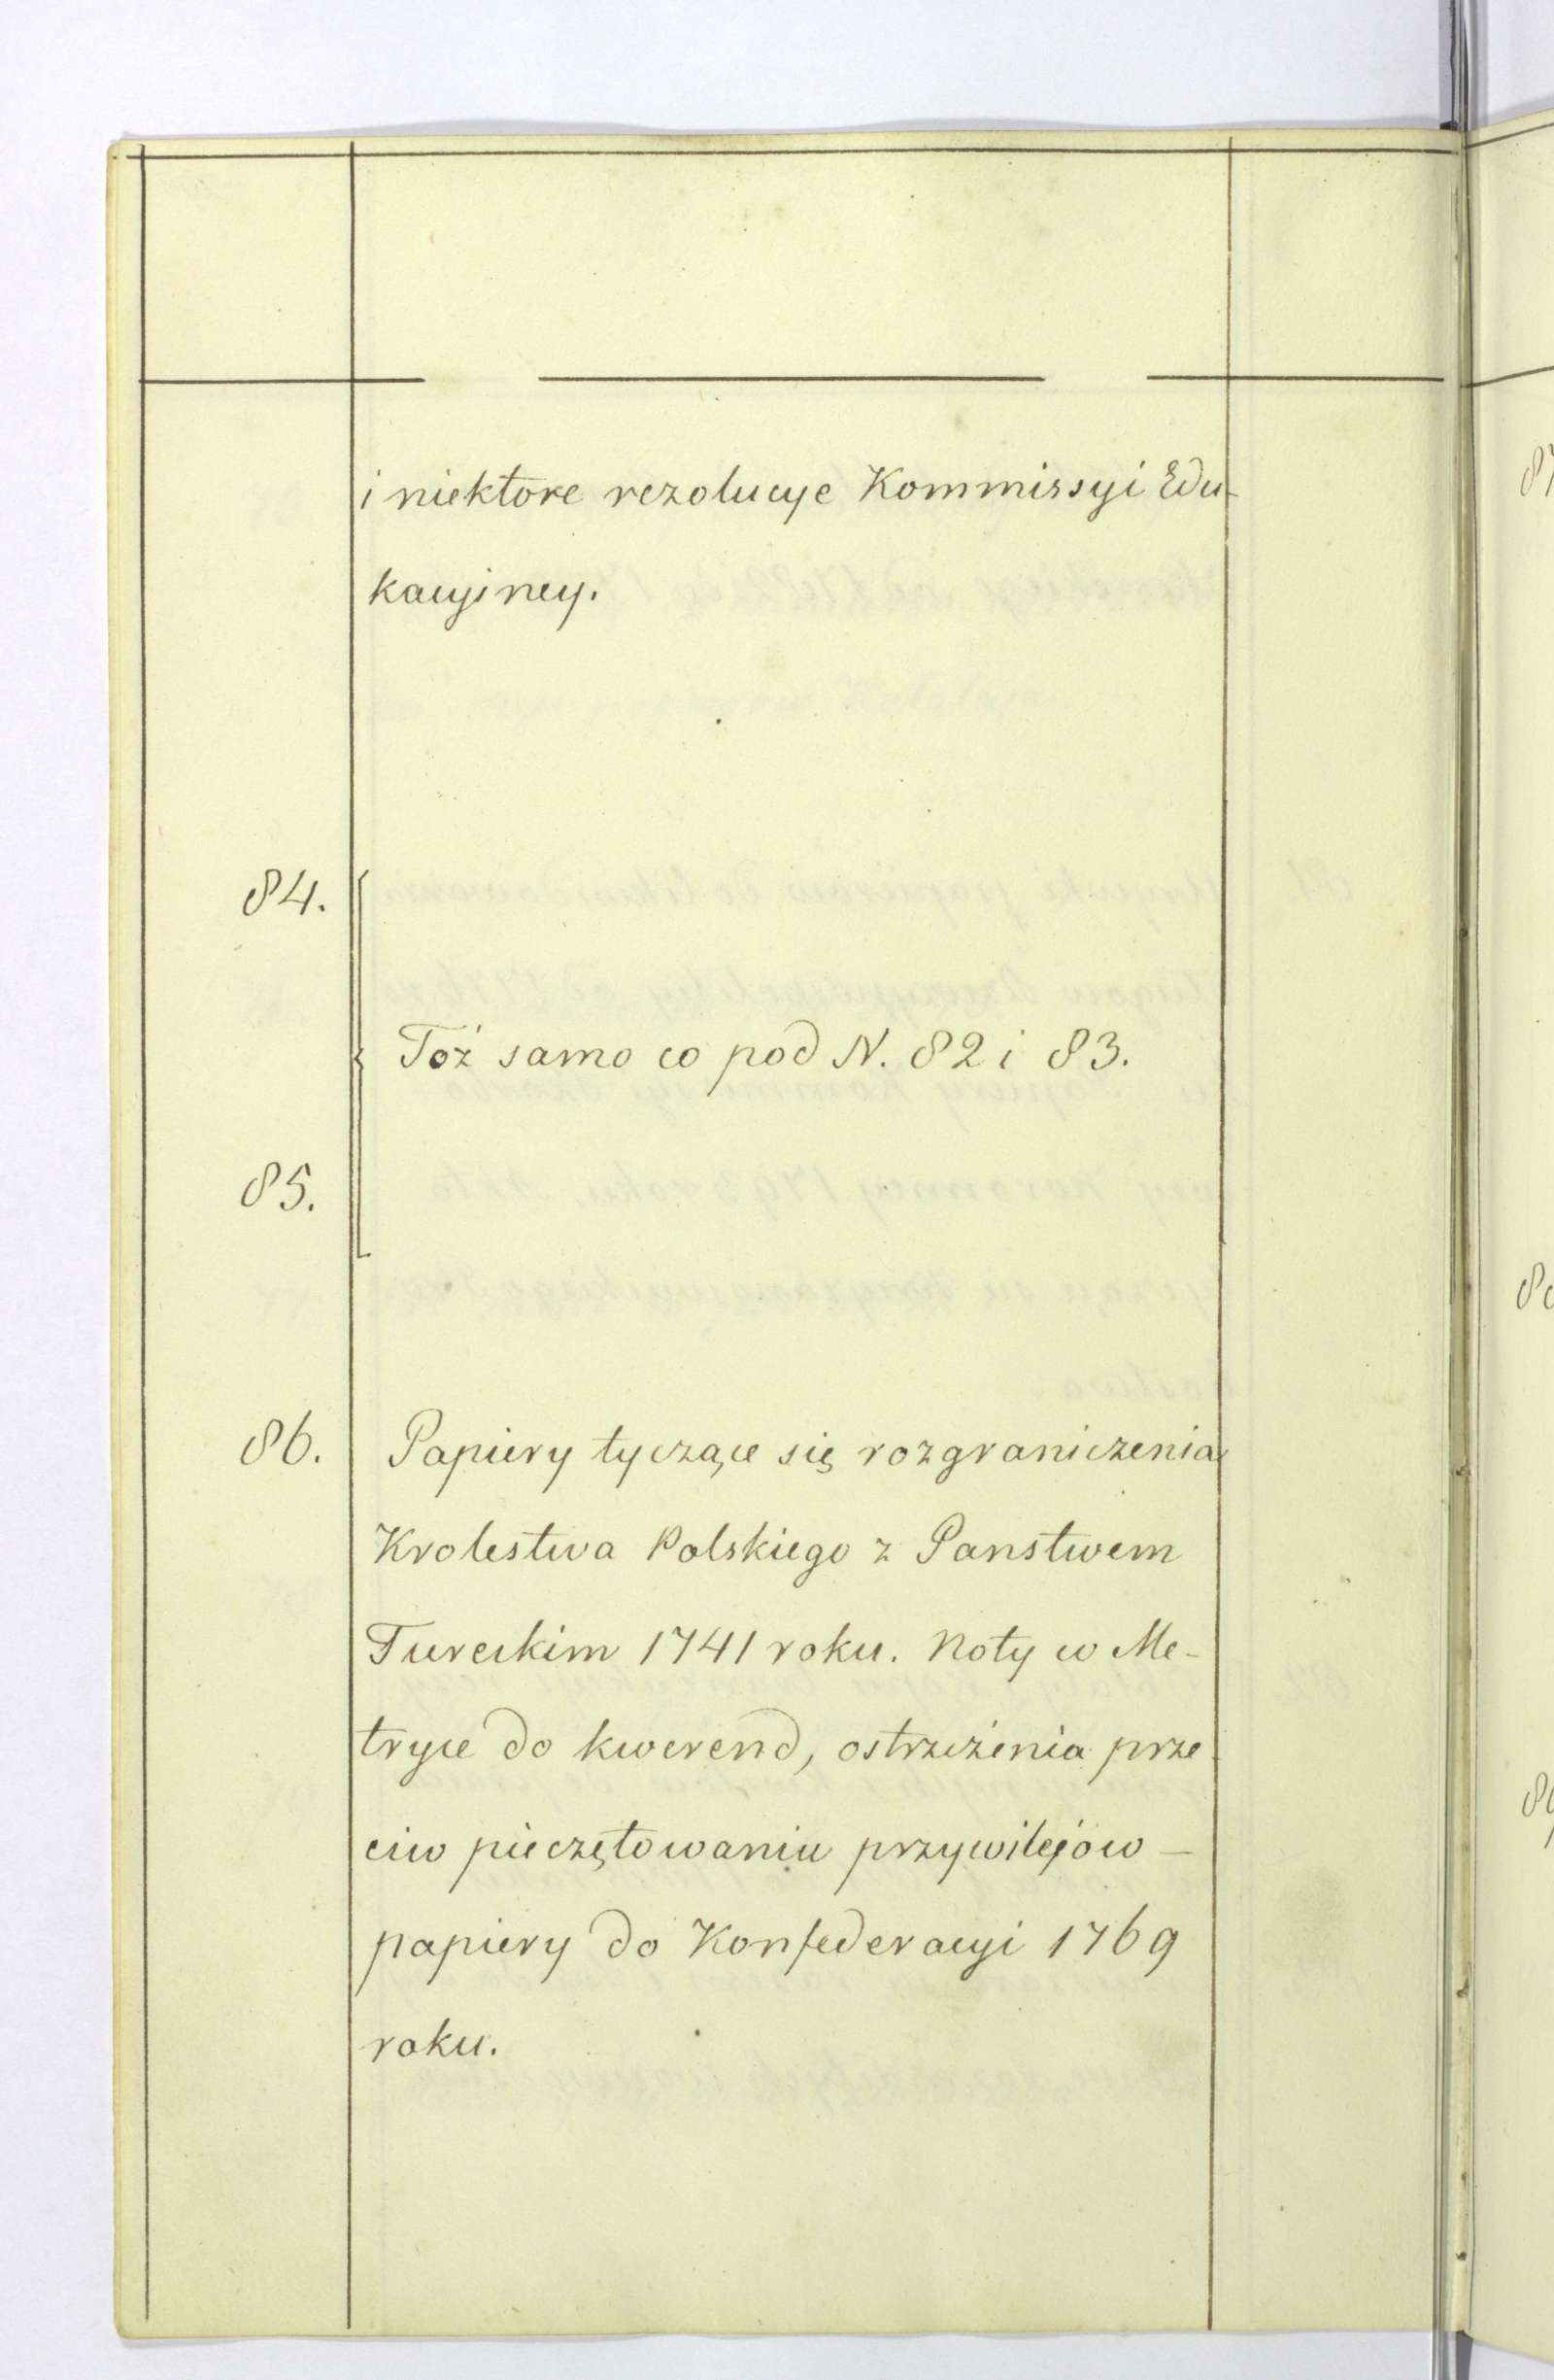 i niektore rezolucye Kommissyi Edu-
kacyjney.
84.
Toż samo co pod N. 82 i 83.
85.
86. Papiery tyczące się rozgraniczenia
Krolestwa Polskiego z Panstwem
Tureckim 1741 roku. Noty w Me-
tryce do kwerend, ostrzeżenia prze
ciw pieczętowaniu przywilejow —
papiery do Konfederacyi 1769
roku.